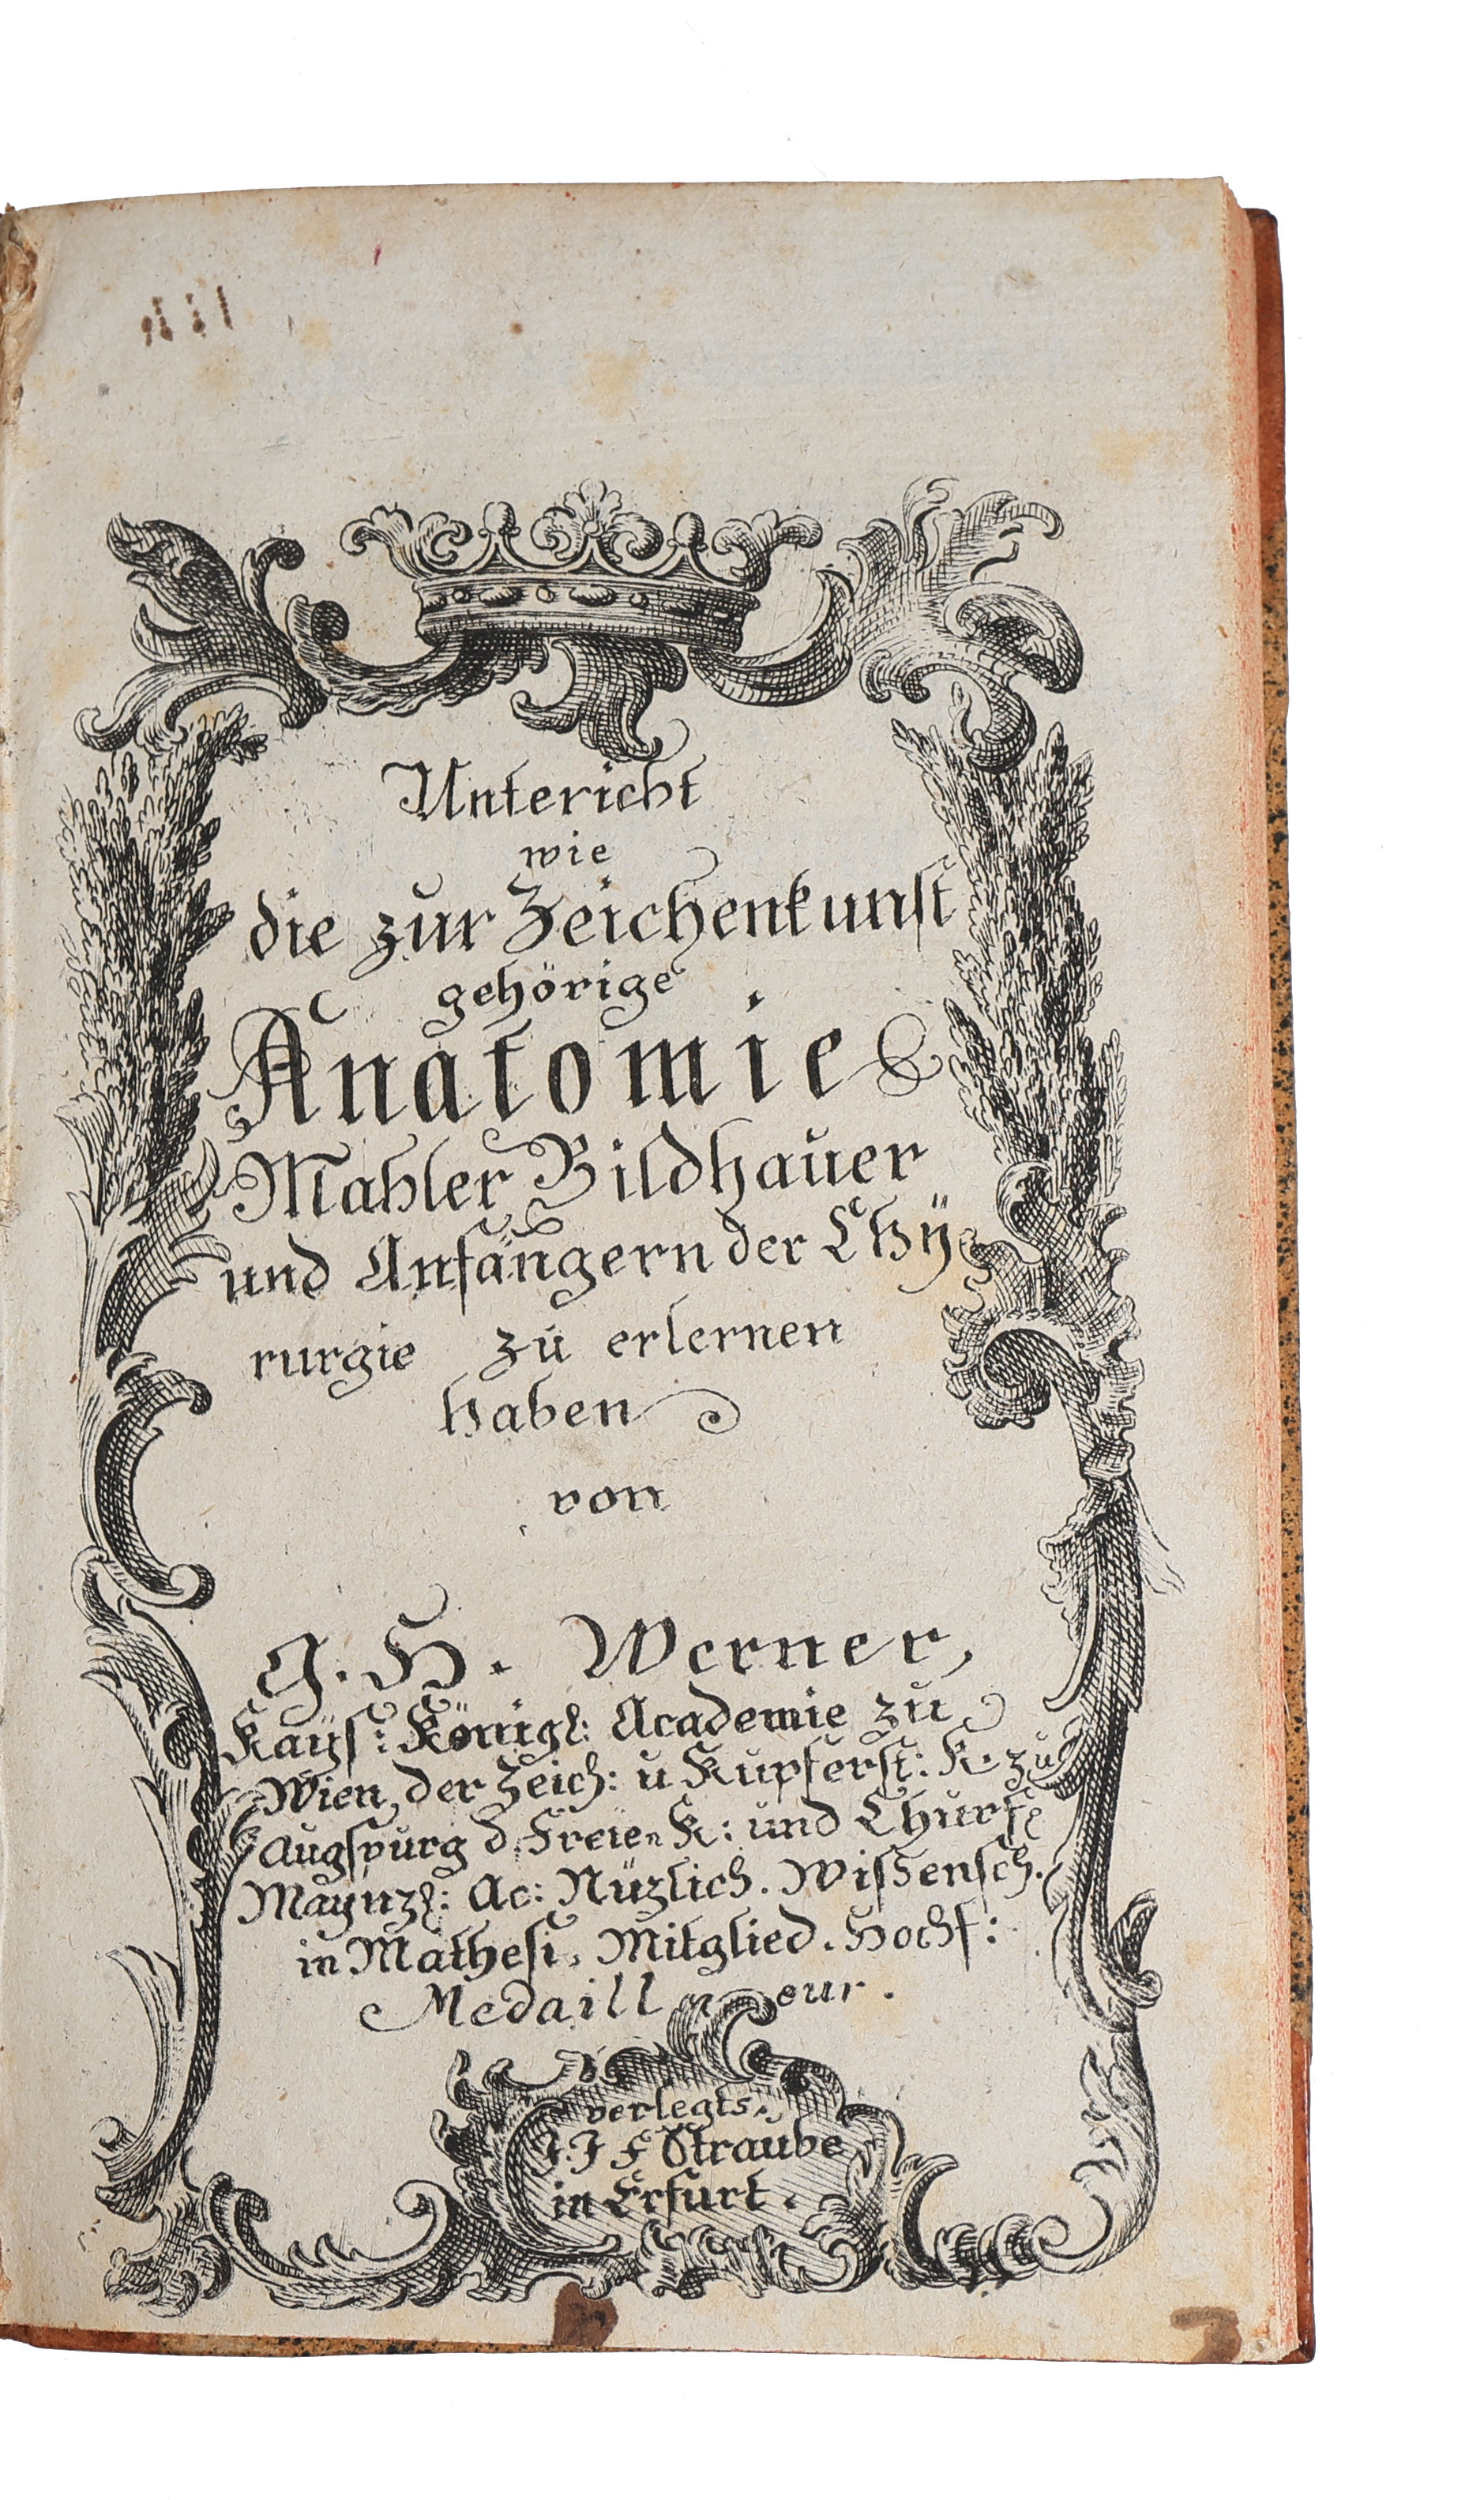 Untericht
wie
die zur Zeichenkunst
gehörige
Anatomie
Mahler Bildhauer
und Anfängern der Chÿ
rurgie zu erlernen
haben
von
G. H. Werner,
Kaÿs: Königl: Academie zu
Wien, der Zeich: u Kupferst: K. zu
Augspurg d. Freien K: und Churfl
Maynzl: Ac: Nüzlich. Wissensch.
in Mathesi, Mitglied. Hochf:
Medailleur.
verlegts.
J. J F Straube
in Erfurt.